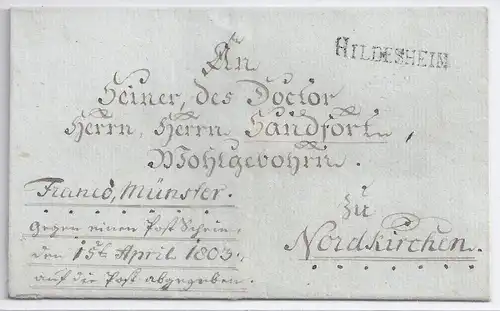 HILDESHEIM
An
Seiner, des Doctor
Herrn, Herrn Sandfort,
Wohlgebohrn.
Franco, Münster.
Gegen einen Post Schein,
den 15t April 1803.
auf die Post abgegeben.
zu
Nordkirchen.